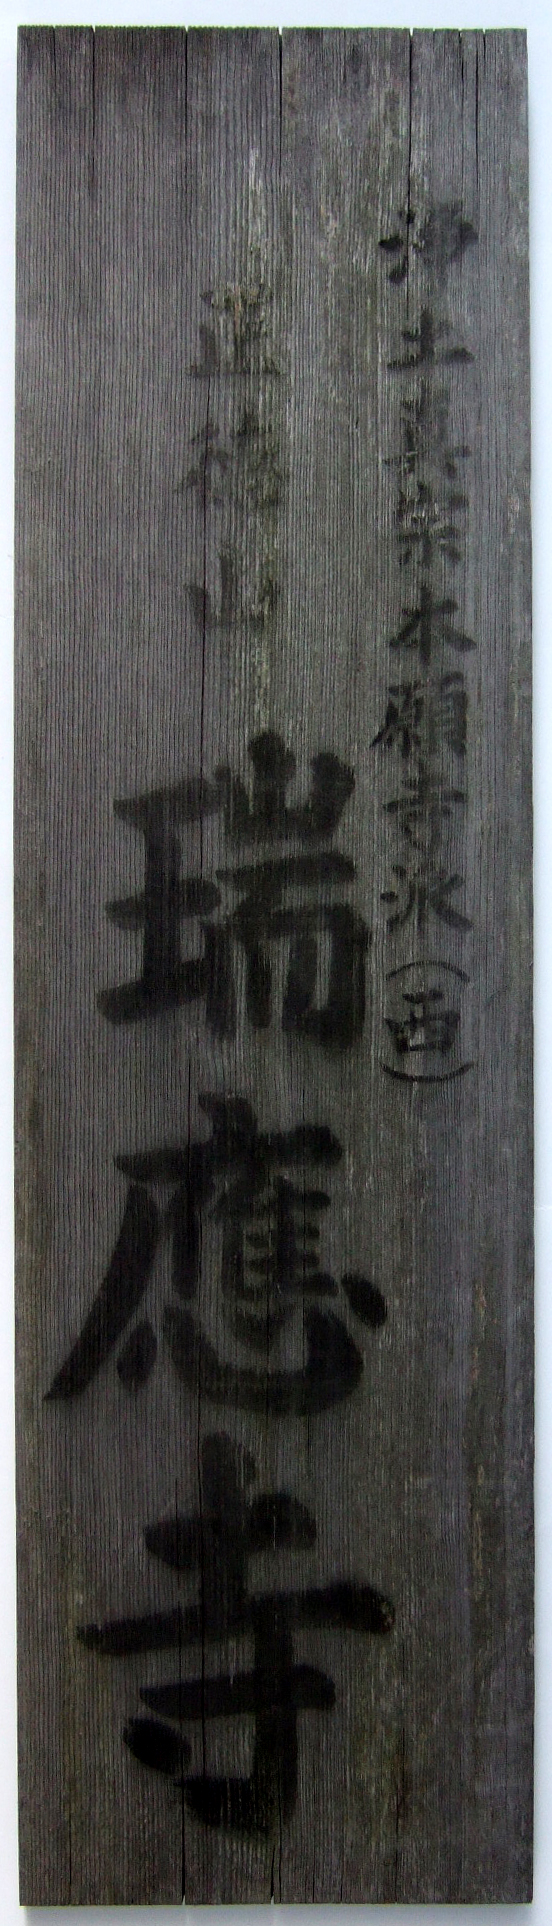 浄土真宗本願寺派（西）
正徳山
瑞應寺